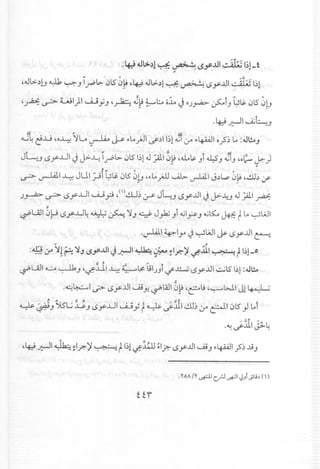 ٤ـ إذا تعلقت الدعوى بشخص يجب إدخاله فيها:
إذا تعلقت الدعوى بشخص يجب إدخاله فيها، فإن كان حاضراً وجب طلبه وإدخاله،
وإن كان غائباً وأمكن حضوره في مدة مناسبة فإنه ينتظر، وتوقف المرافعة حتى يحضر،
ويستأنف السير فيها.
ومثاله: ما ذكره الفقهاء من أنه إذا ادعى الغرماء على مفلس مالاً بيده، فدفع بأنه
لرجل سماه، وأنه وكيله أو عامله، فإن المقر له إذا كان حاضراً يدخل في الدعوى ويسأل
عن ذلك، فإن صادق المفلس حلف للغرماء، وإن كان غائباً أقر المال بيد المفلس حتى
يحضر المقر له ويدخل في الدعوى ويسأل عن ذلك(١)، فتوقف الدعوى حتى حضور
الغائب ما لم يجهل مكانه وعنوانه أو تطول غيبته ولا يمكن تبليغه بالدعوى فإن القاضي
يسمع الدعوى على الغائب في مواجهة المفلس.
٥ـ إذا لم يستجب المدعي لإجراء معين يتطلبه السير في الدعوى ولا يتم إلا من قبله:
مثاله: إذا كانت الدعوى تستدعي أوراقاً محاسبية بيد المدعي، وطلب منه القاضي
تسليمها إلى المحاسب، فامتنع، فإن القاضي يوقف الدعوى حتى استجابته.
أما لو كان الممتنع من ذلك المدعى عليه لم توقف الدعوى وعُدَّ ناكلاً وقضي عليه
بالحق المدعى به.
وقد ذكر الفقهاء وقف الدعوى جزاء للمدعي إذا لم يستجب لإجراء يتطلبه السير فيها،
(١) دقائق أولي النهى لشرح المنتهى ٢/ ٢٨٨.
٤٤٣